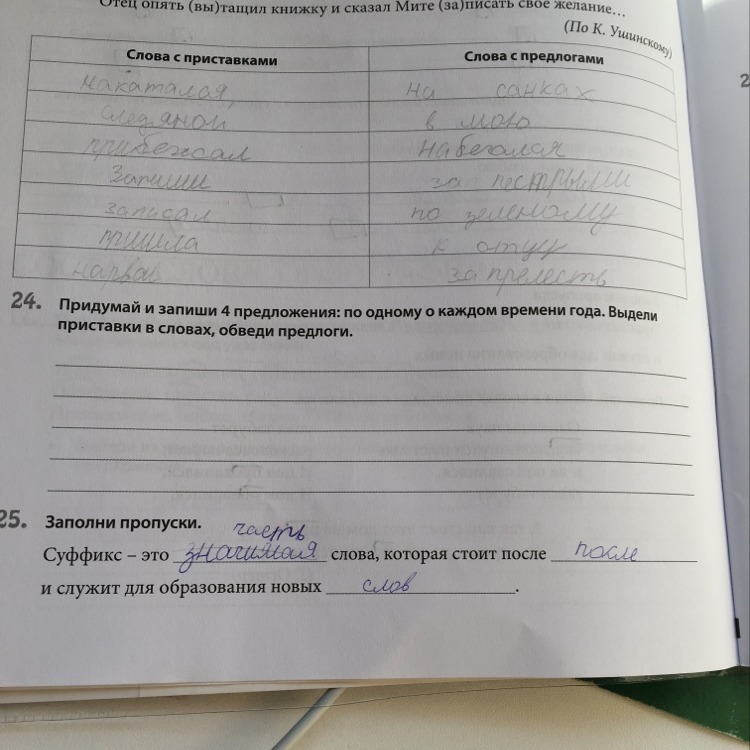 Отец опять (вы)тащил книжку и сказал Мите (за)писать свое желание…
(По К. Ушинскому)
Слова с приставками Слова с предлогами
накатался, на санках
в мою
прибежал набегался
Запиши за пестрыми
записал по зеленому
пришла к отцу
нарвал за прелесть
24. Придумай и запиши 4 предложения: по одному о каждом времени года. Выдели
приставки в словах, обведи предлоги.
25. Заполни пропуски.
часть
Суффикс – это значимая слова, которая стоит после после
и служит для образования новых слов.